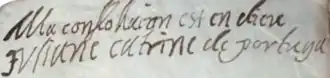 Ma consolasion est en dieu
Juliane catrine de portuga